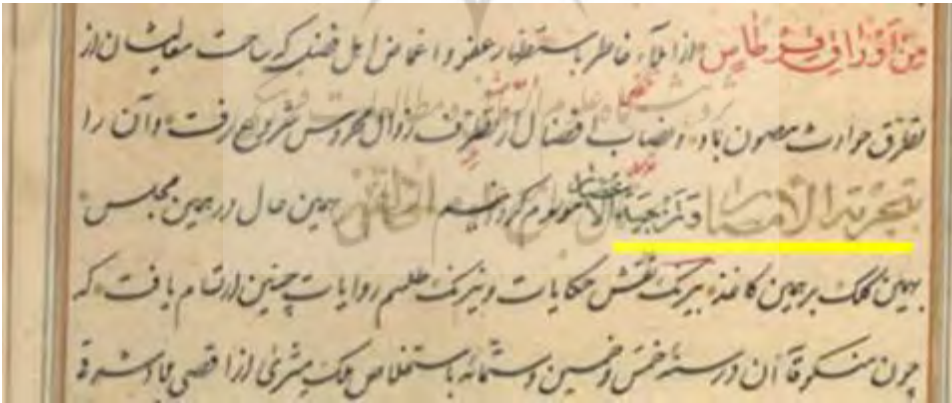 من اوراق قرطاس از املاء خاطر باستظهار عفو و اغماض اهل فضل که ساحت معالیشان از
تطرق حوادث مصون باد و نصاب افضال از تطرف زوال محروس شروع رفت و آن را
بتجزیة الامصار و تزجیة الاعصار موسوم گردانید همین حال در همین مجلس
بهمین کلک بر همین کاغذ نیرنگ نقش حکایات و نیرنگ طلسم روایات چنین ارتسام یافت که
چون منکوقاآن در سنه خمس و خمسین و ستمائه باستخلاص ملک از اقصی بلاد